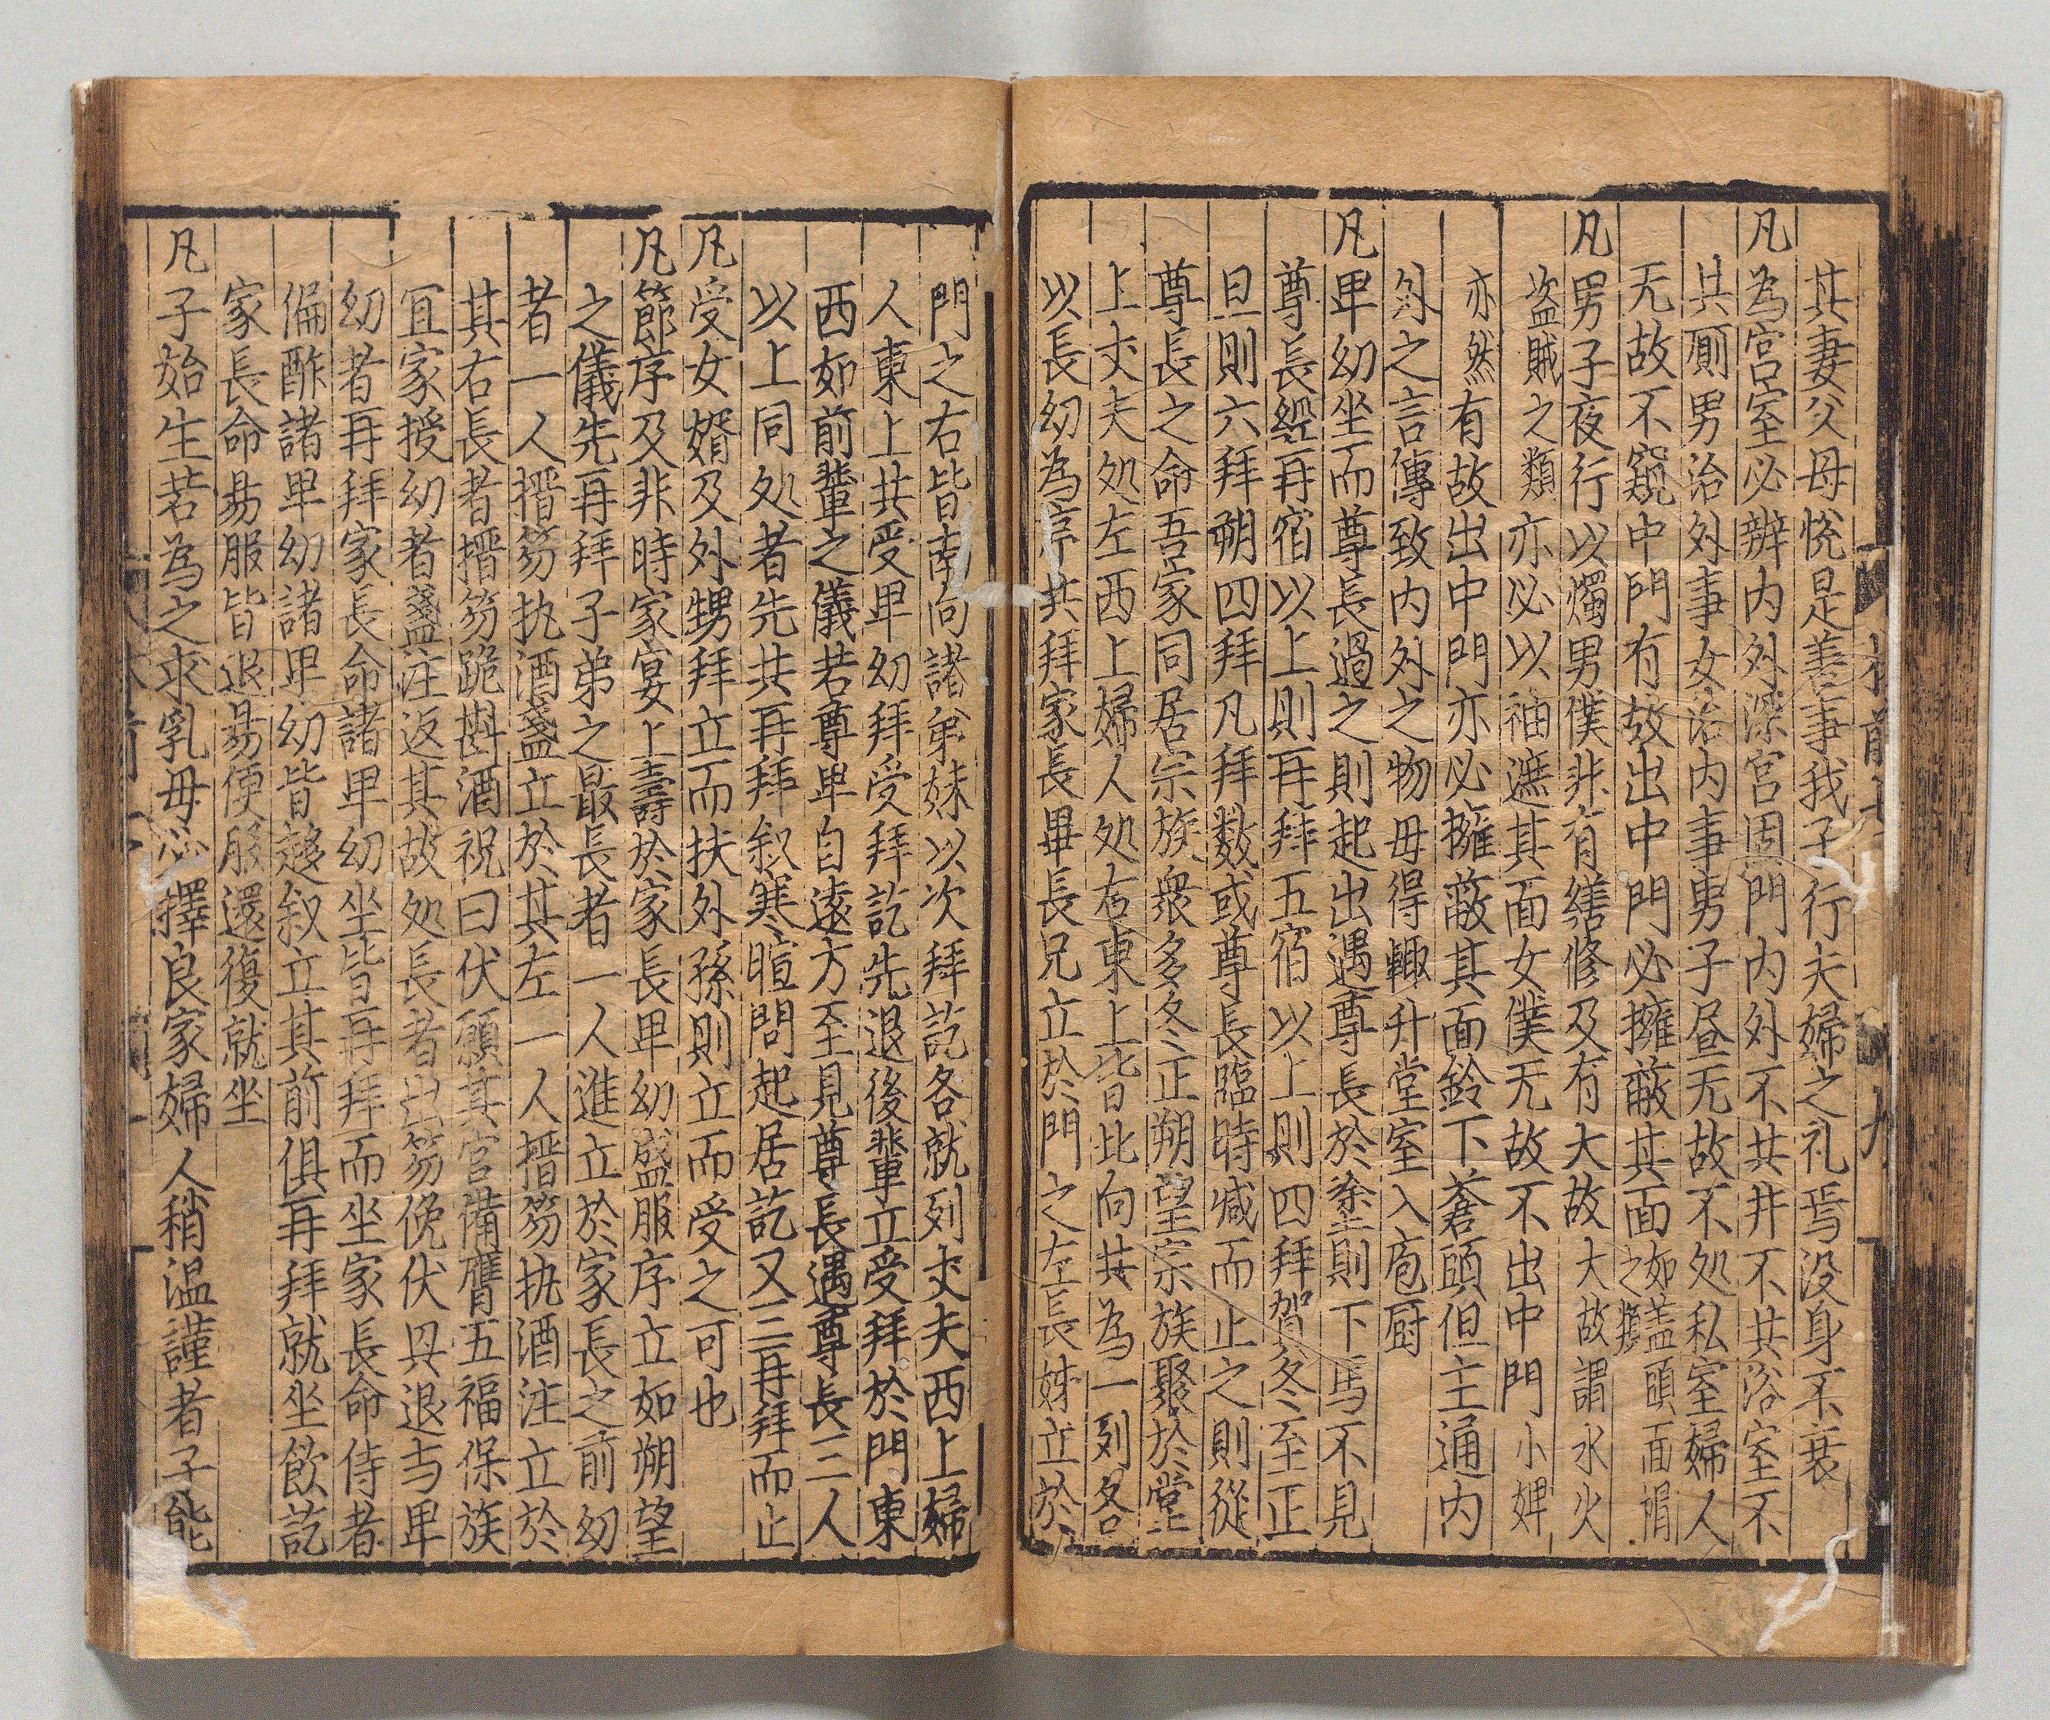 其妻父母悅是善事我子行夫婦之礼焉没身不衰
凡為宫室必辦内外深宫固門内外不共井不共浴室不
共厠男治外事女治内事男子昼无故不処私室婦人
无故不窺中門有故出中門必擁蔽其面如盖頭面㡓之類
凡男子夜行以燭男僕非有繕修及有大故大故謂水火
盗賊之類亦必以袖遮其面女僕无故不出中門小婢
亦然有故出中門亦必擁蔽其面鈴下蒼頭但主通内
外之言傳致内外之物毋得輙升堂室入庖厨
凡卑幼坐而尊長過之則起出遇尊長於塗則下馬不見
尊長經再宿以上則再拜五宿以上則四拜賀冬至正
旦則六拜朔四拜凡拜数或尊長臨時减而止之則從
尊長之命吾家同居宗族衆多冬正朔望宗族聚於堂
上丈夫処左西上婦人処右東上皆北向共為一列各
以長幼為序共拜家長畢長兄立於門之左長姊立於
門之右皆南向諸弟妹以次拜訖各就列丈夫西上婦
人東上共受卑幼拜受拜訖先退後輩立受拜於門東
西如前輩之儀若尊卑自逺方至見尊長遇尊長三人
以上同処者先共再拜叙寒暄問起居訖又三再拜而止
凡受女婿及外甥拜立而扶外孫則立而受之可也
凡節序及非時家宴上壽於家長卑幼盛服序立如朔望
之儀先再拜子弟之最長者一人進立於家長之前幼
者一人搢笏执酒盞立於其左一人搢笏执酒注立於
其右長者搢笏跪斟酒祝曰伏願其官備膺五福保族
冝家授幼者盞注返其故処長者出笏俛伏㒷退与卑
幼者再拜家長命諸卑幼坐皆再拜而坐家長命侍者
徧酢諸卑幼諸卑幼皆起叙立其前俱再拜就坐飲訖
家長命易服皆退易便服還復就坐
凡子始生若為之求乳母必擇良家婦人稍温謹者子能